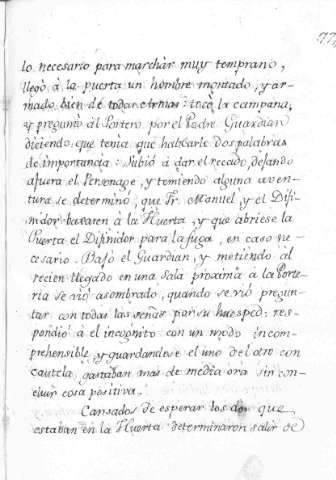 77
lo necesario para marchàr muy temprano,
llegò à la puerta un hombre montado, y ar-
mado bien de todas armas: tocò la campana,
y preguntò àl Portero por el Padre Guardian
diciendo que tenia que hablarle dos palabras
de importancia: Subiò à dar el recado, dejando
afuera el Personage, y temiendo alguna aven-
tura se determinò, que Fr. Manuel, y el Difi-
nidor bajasen à la Huerta, y que abriese la
Puerta el Difinidor para la fuga, en caso ne-
cesario. Bajò el Guardian, y metiendo àl
recien llegado en una Sala proxima à la Porte-
ria se viò asombrado, quando se viò pregun-
tar con todas las señas por su huesped: res-
pondiò à el incognito con un modo incom-
prehensible, y guardandose el uno del otro con
cautela gastaban mas de media ora sin con-
cluir cosa positiva.
Cansados de esperar los dos que
estaban en la Huerta determinaron salir de